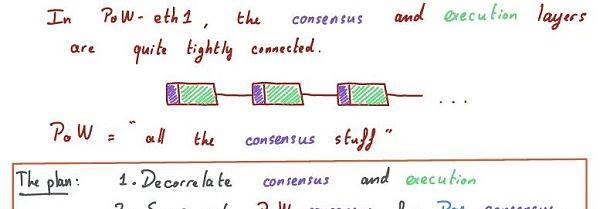 In PoW-eth1, the consensus and execution layers
are quite tightly connected.
...
PoW = "all the consensus stuff"
The plan: 1. Decorrelate consensus and execution